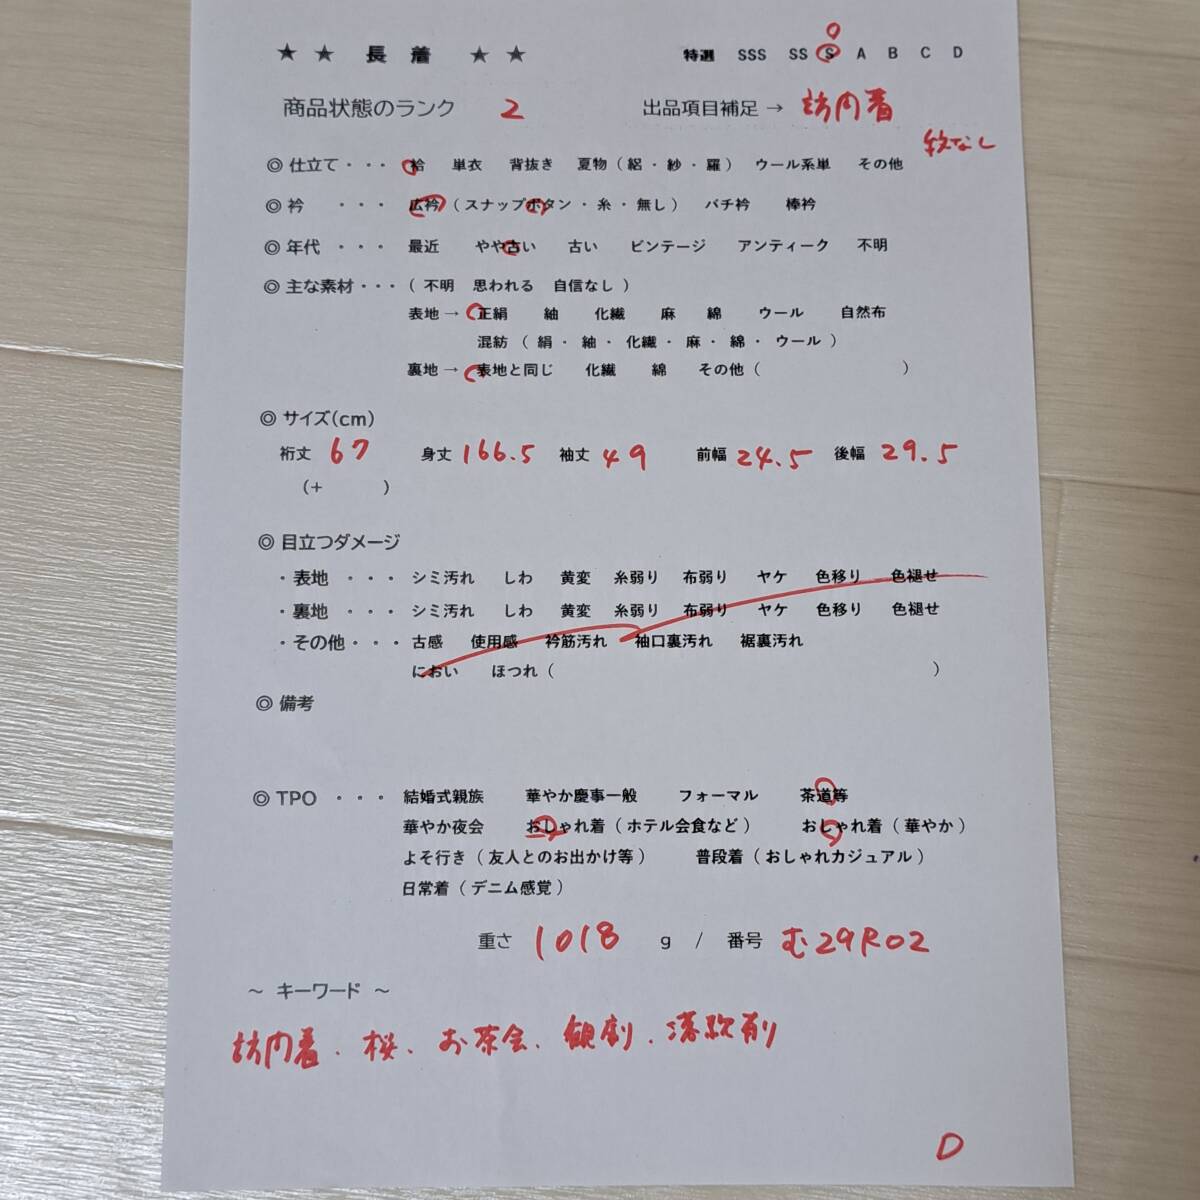 ★ ★ 長 着 ★ ★ 特選 SSS SS S A B C D
商品状態のランク 2 出品項目補足 → 訪問着
紋なし
◎ 仕立て・・・ 袷 単衣 背抜き 夏物(絽・紗・羅) ウール系単 その他
◎ 衿 ・・・ 広衿(スナップボタン・糸・無し) バチ衿 棒衿
◎ 年代 ・・・ 最近 やや古い 古い ビンテージ アンティーク 不明
◎ 主な素材・・・(不明 思われる 自信なし)
表地→ 正絹 紬 化繊 麻 綿 ウール 自然布
混紡(絹・紬・化繊・麻・綿・ウール)
裏地→ 表地と同じ 化繊 綿 その他( )
◎ サイズ(cm)
裄丈 67 身丈 166.5 袖丈 49 前幅 24.5 後幅 29.5
(+ )
◎ 目立つダメージ
・表地 ・・・ シミ汚れ しわ 黄変 糸弱り 布弱り ヤケ 色移り 色褪せ
・裏地 ・・・ シミ汚れ しわ 黄変 糸弱り 布弱り ヤケ 色移り 色褪せ
・その他・・・ 古感 使用感 衿筋汚れ 袖口裏汚れ 裾裏汚れ
におい ほつれ( )
◎ 備考
◎ TPO ・・・ 結婚式親族 華やか慶事一般 フォーマル 茶道等
華やか夜会 おしゃれ着(ホテル会食など) おしゃれ着(華やか)
よそ行き(友人とのお出かけ等) 普段着(おしゃれカジュアル)
日常着(デニム感覚)
重さ 1018 g / 番号 む29R02
~ キーワード ~
訪問着、桜、お茶会、観劇、落款有り
D